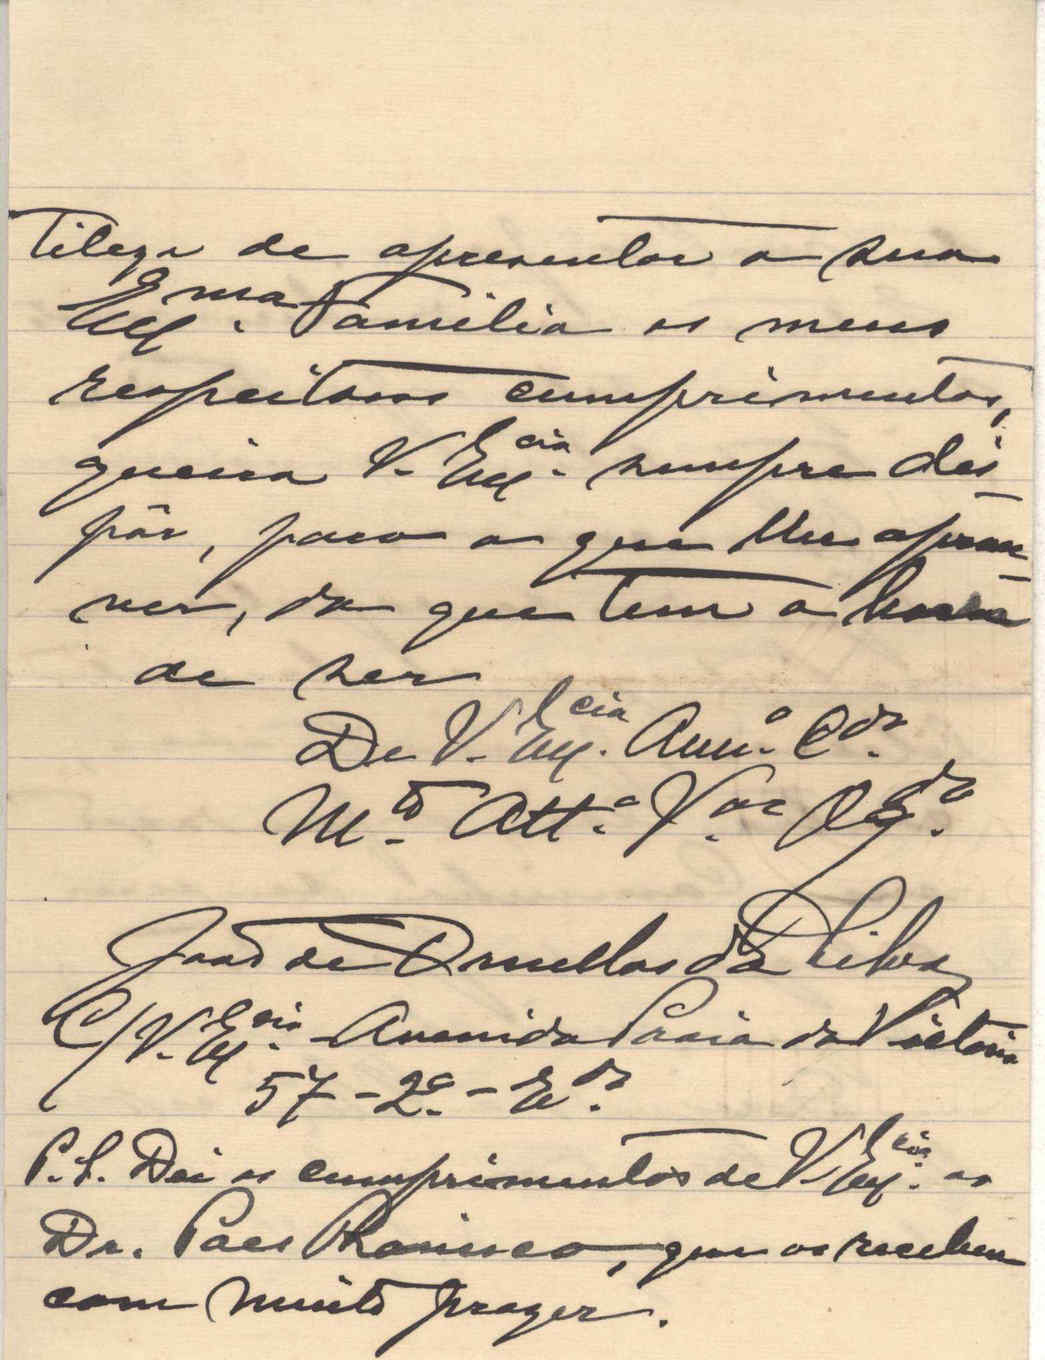 tileza de apresentar a sua
Ex.ma Familia os meus
respeitosos cumprimentos,
queira V. Ex.cia sempre dis
pôr, para o que lhe aprou
ver, do que tem a honra
de ser
De V. Ex.cia Am.o C.do
M.to Att.o V.or Obg.do
João de Ornellas da Silva
C/V. Ex.cia - Avenida Praia da Victoria
57 - 2.º - E.do
P.S. Dei os cumprimentos de V. Ex.cia ao
Dr. Paes que os recebeu
com muito prazer.